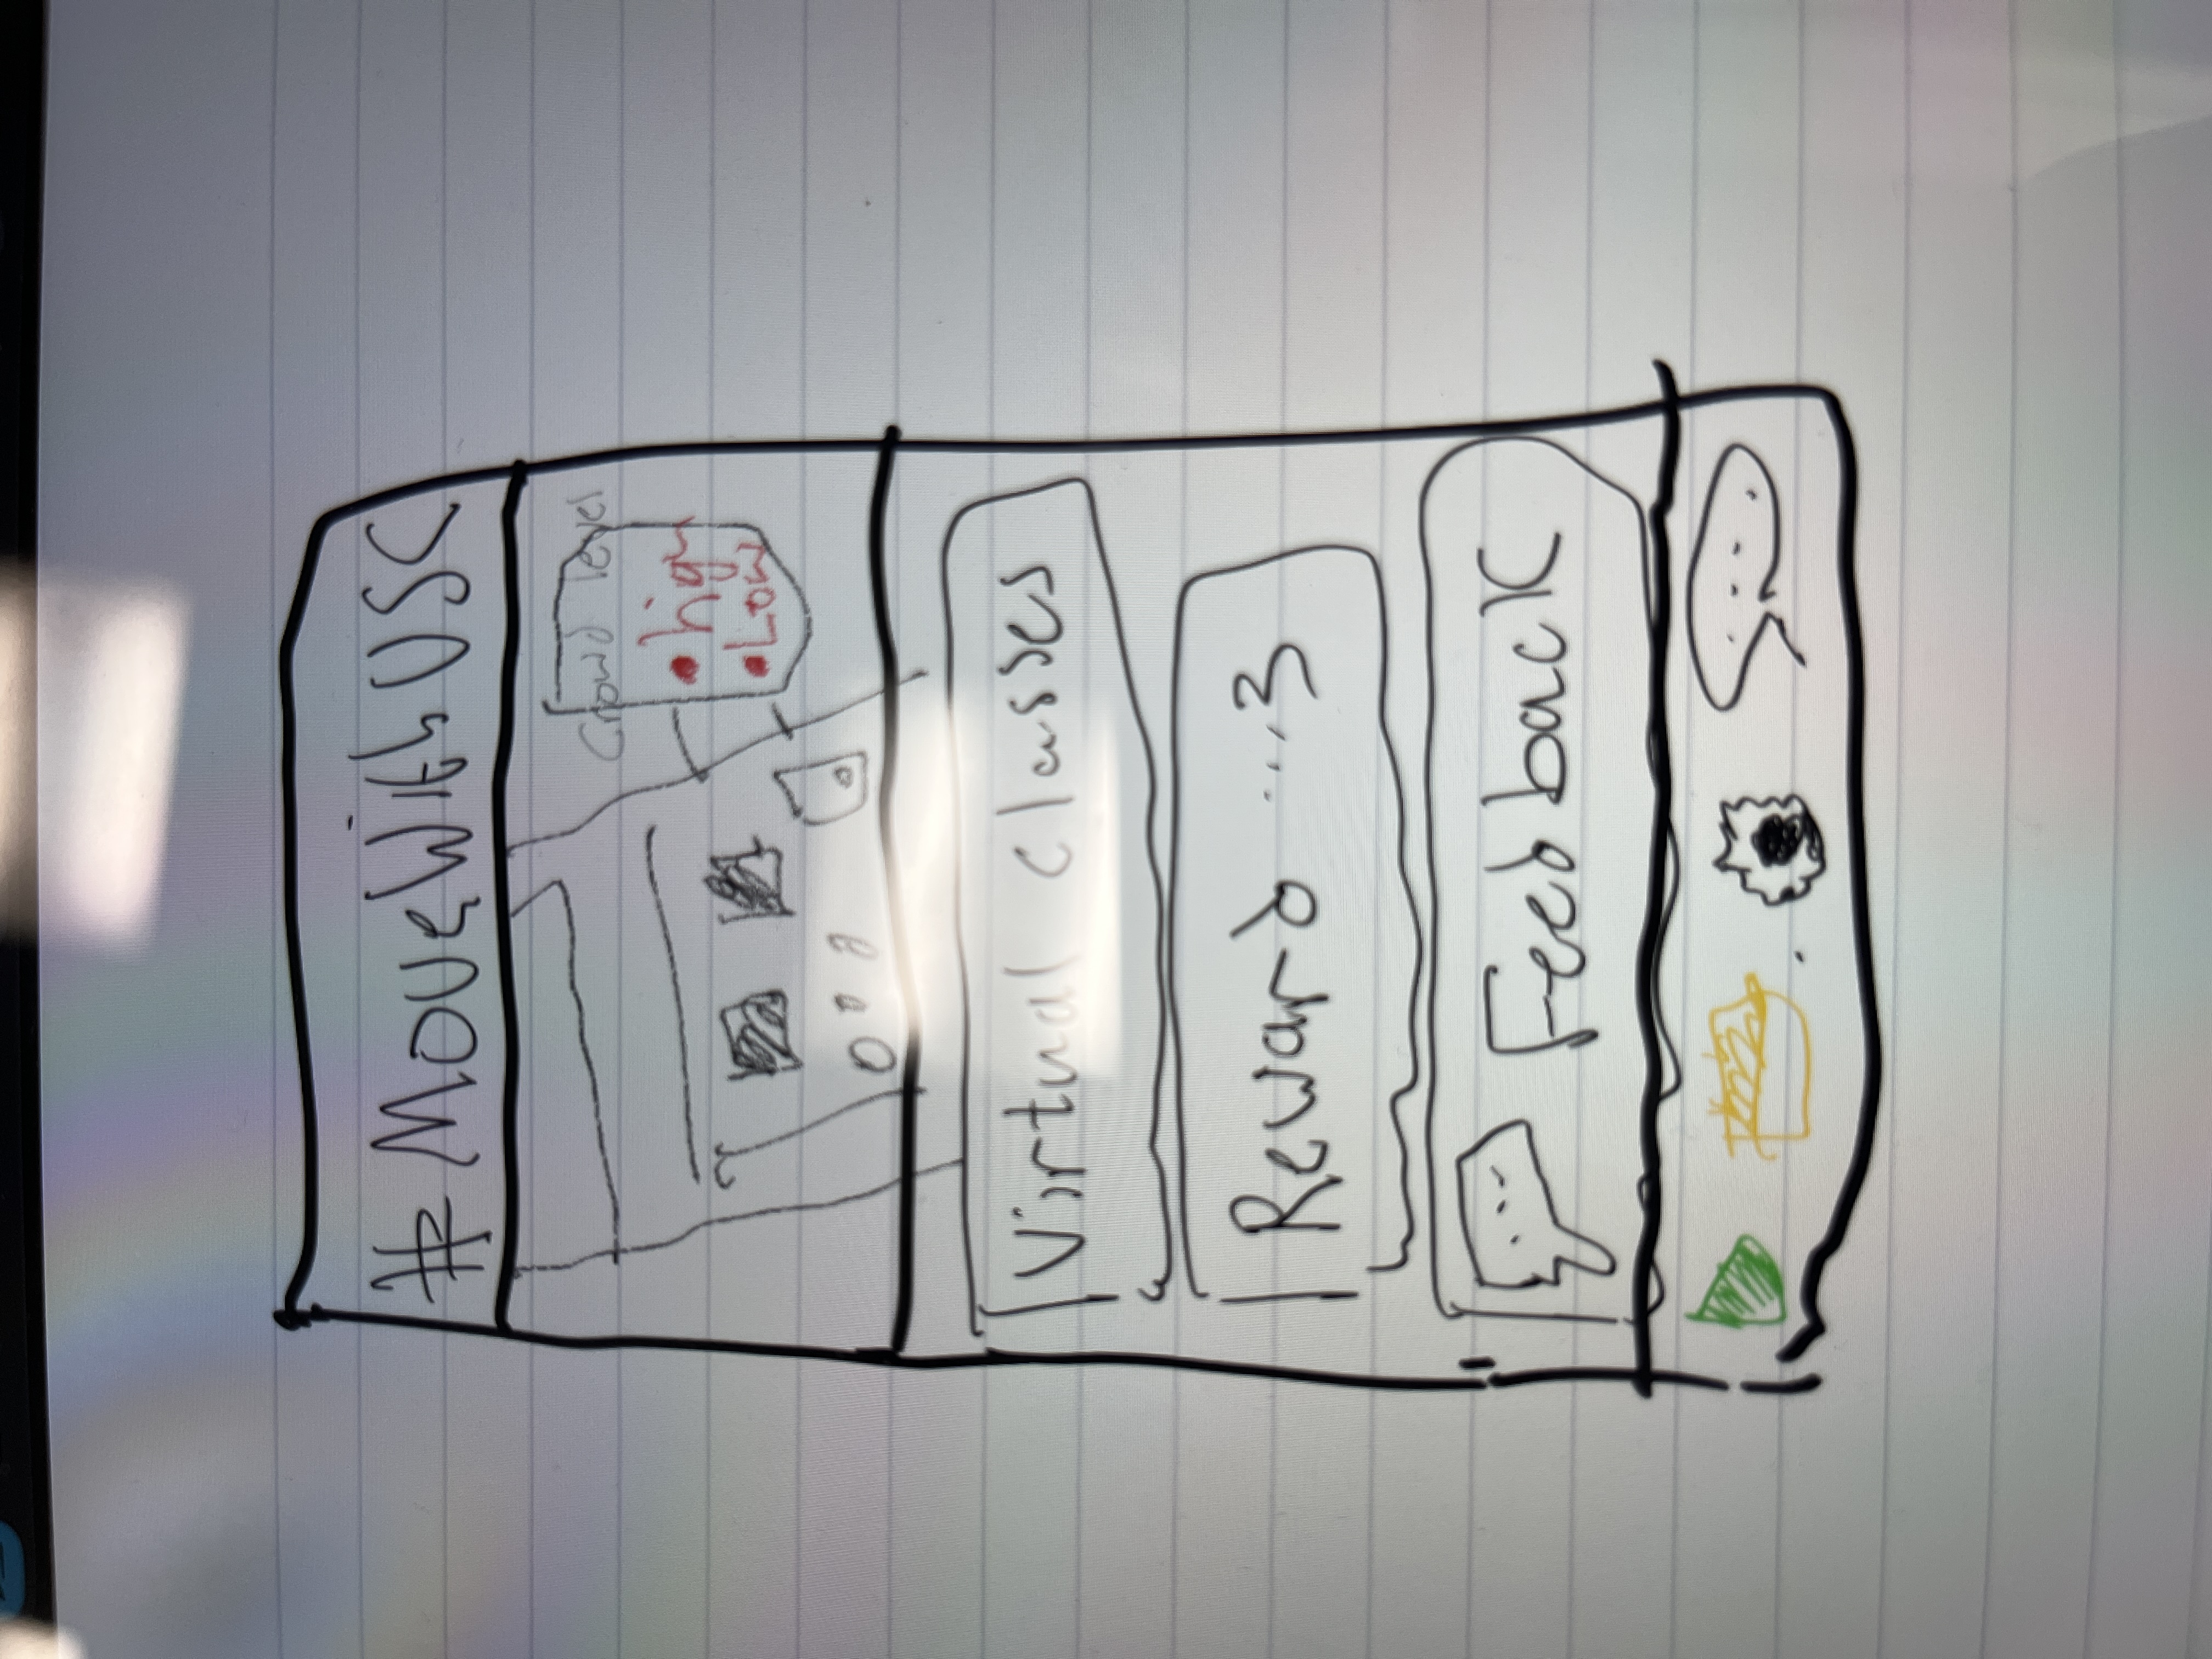 #MoveWithUSC
Crowd level
high
Low
Virtual classes
Reward ...3
Feedback